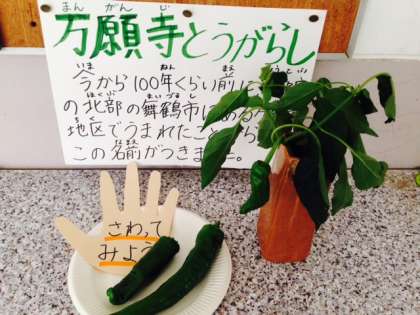 まんがんじ
万願寺とうがらし
いま ねん
今から100年くらい前に
ほくぶ まいづるし
の北部の舞鶴市に
ちく
地区でうまれたこと
この名前がつきました。
さわって
みよう